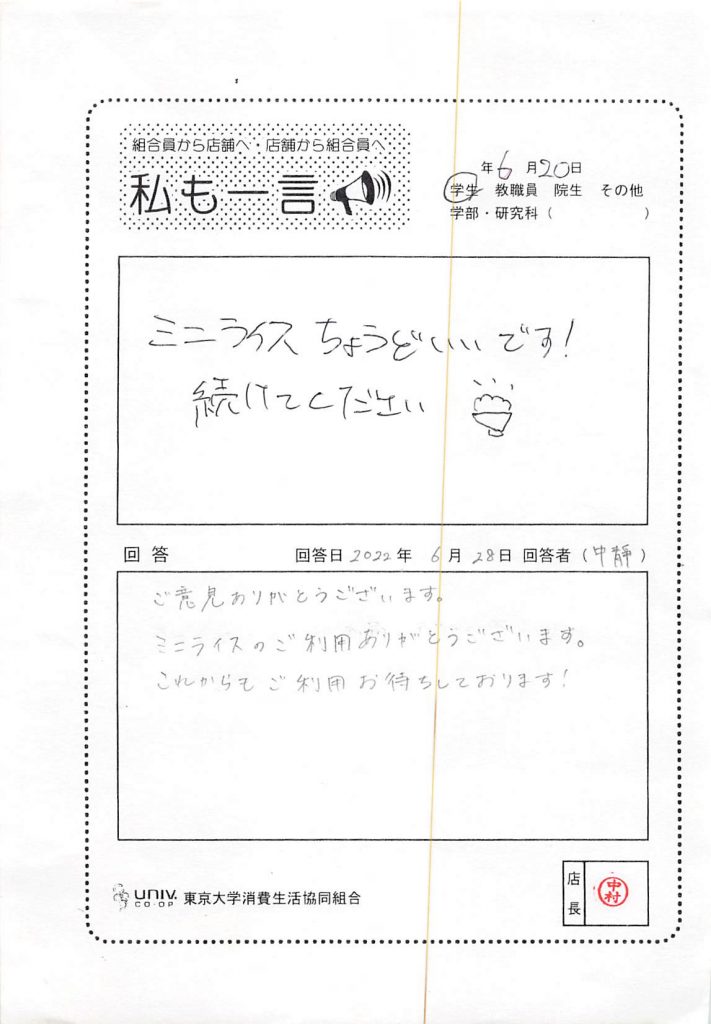 組合員から店舗へ・店舗から組合員へ
私も一言
年6月20日
学生 教職員 院生 その他
学部・研究科( )
ミニライス ちょうどいいです!
続けてください
回答 回答日2022年 6月28日 回答者(中静)
ご意見ありがとうございます。
ミニライスのご利用ありがとうございます。
これからもご利用お待ちしております!
UNIV. CO-OP 東京大学消費生活協同組合
店長
中村